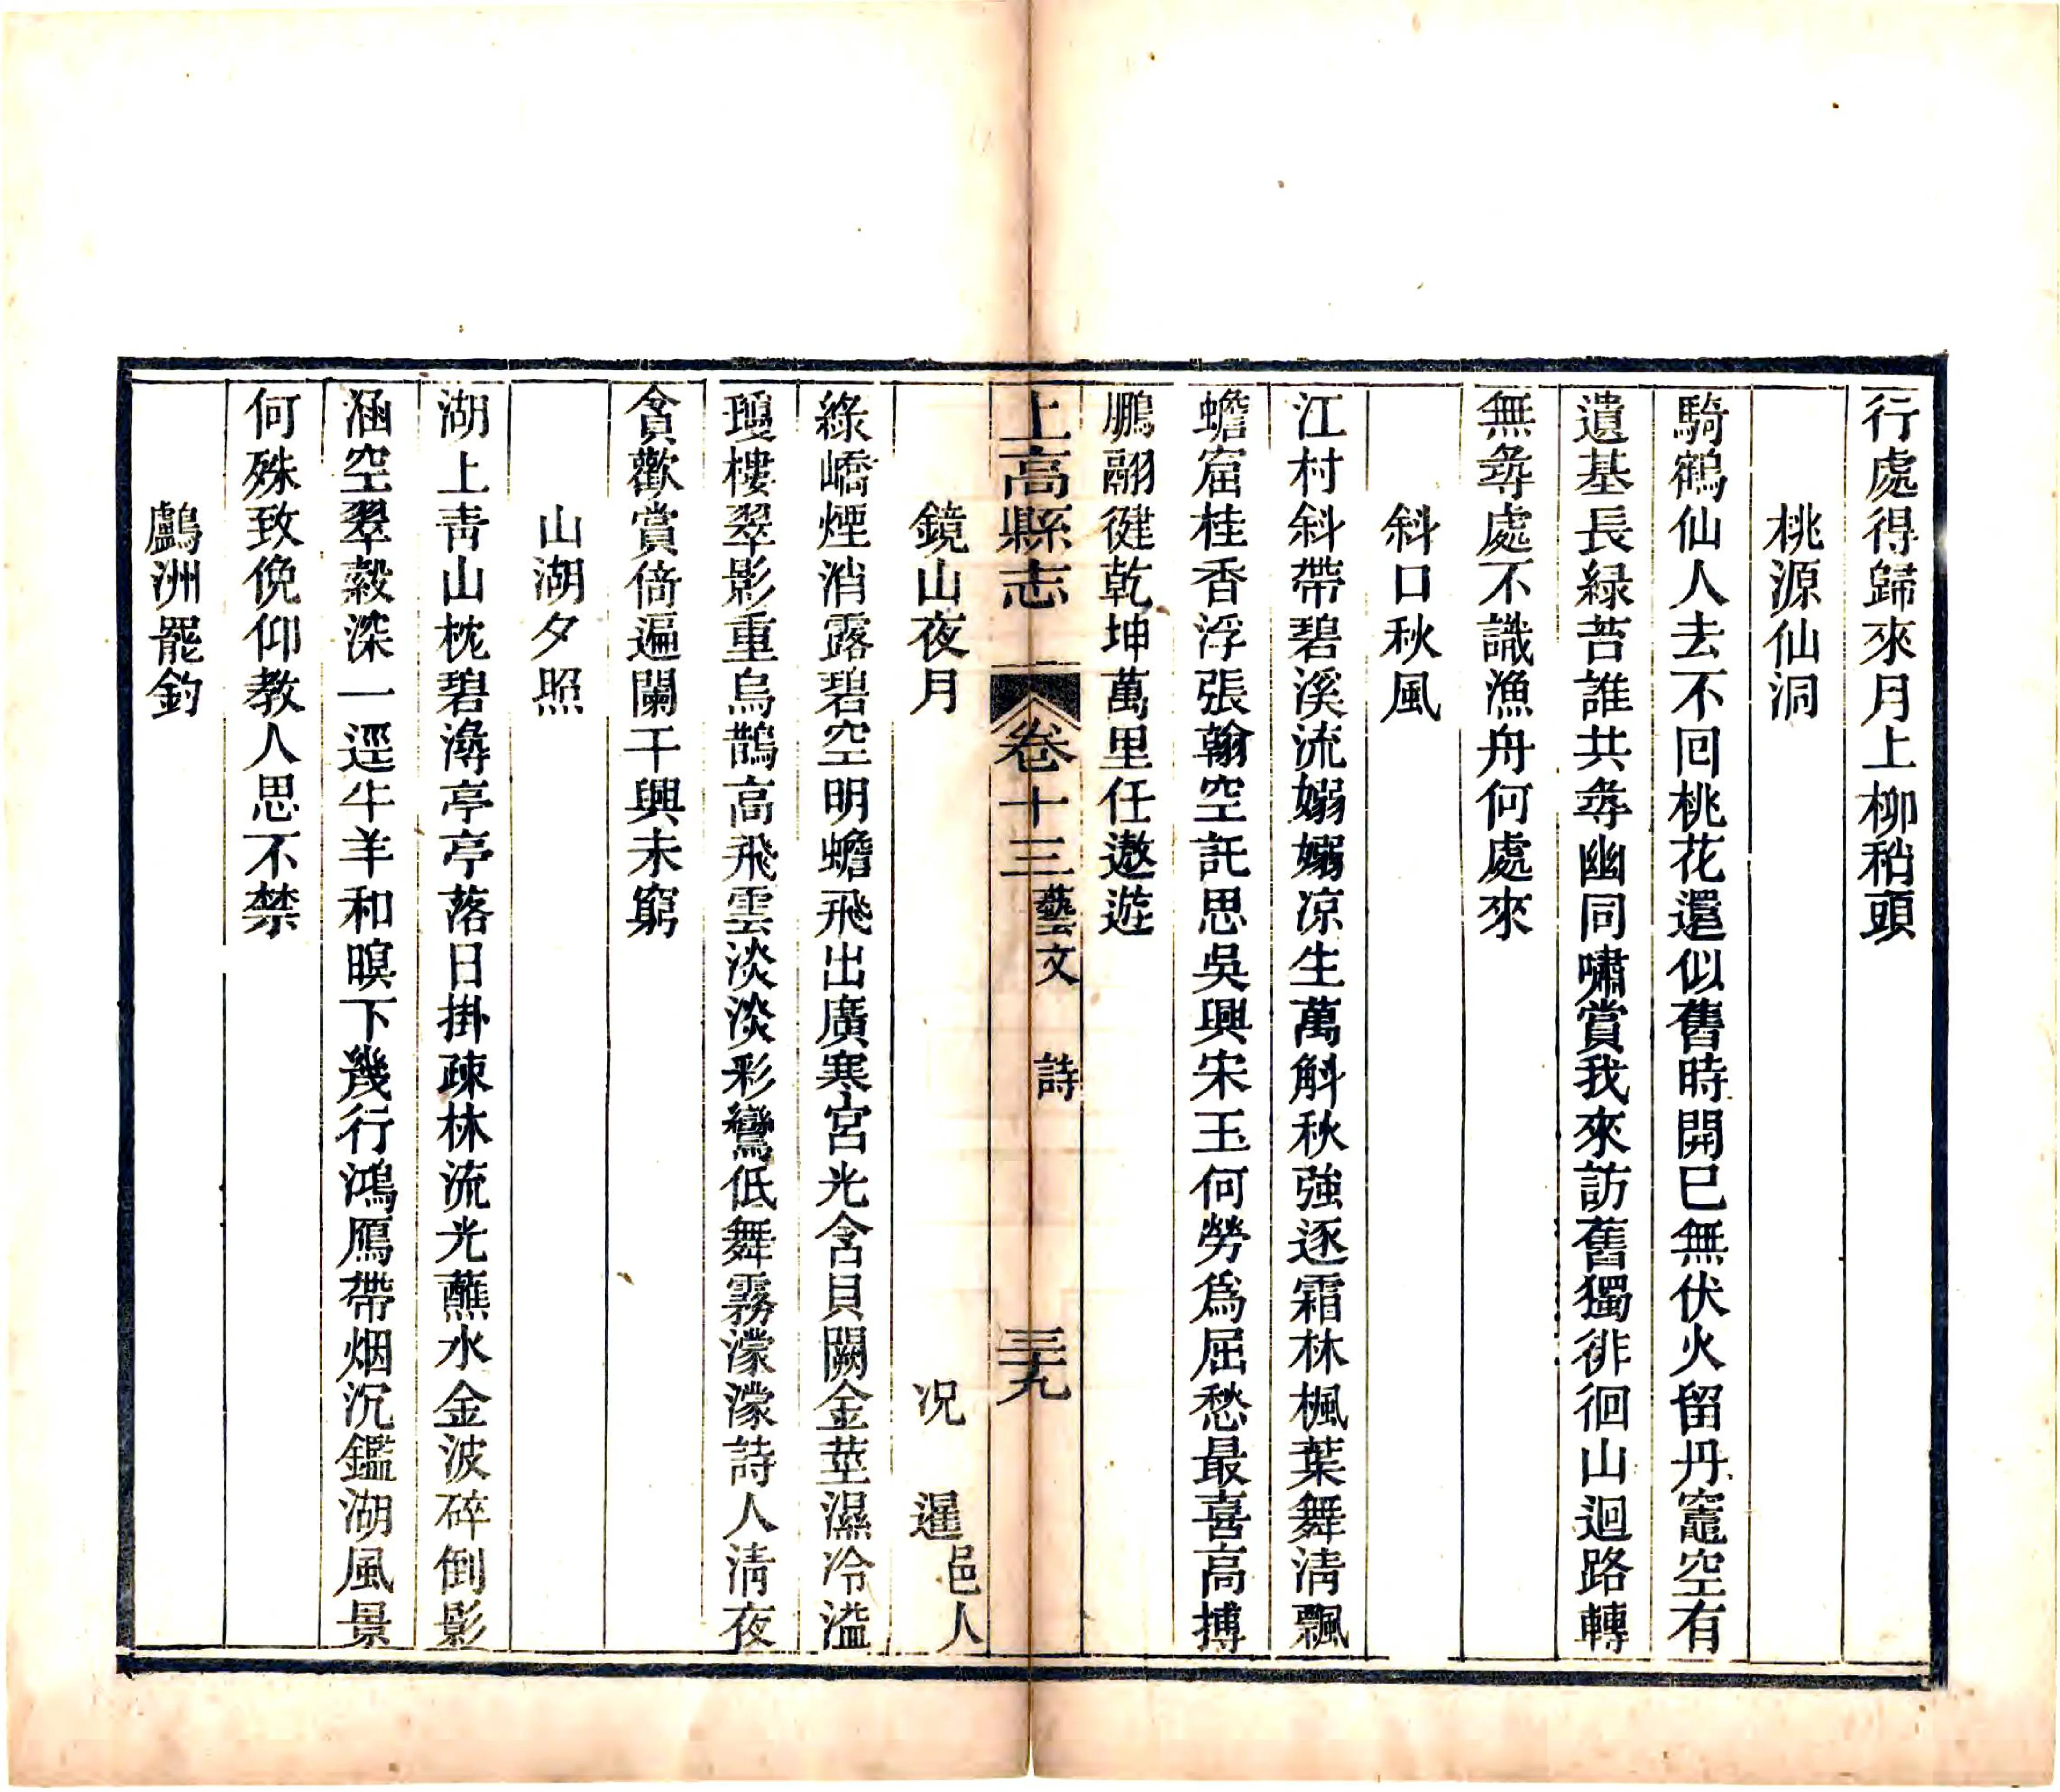 行處得歸來月上柳稍頭
桃源仙洞
騎鶴仙人去不囘桃花還似舊時開已無伏火留丹竈空有
遺基長緑苔誰共尋幽同嘯賞我來訪舊獨徘徊山迴路轉
無尋處不識漁舟何處來
斜口秋風
江村斜帶碧溪流嫋嫋凉生萬斛秋強逐霜林楓葉舞淸飄
蟾窟桂香浮張翰空託思吳興宋玉何勞爲屈愁最喜高搏
鵬翮徤乾坤萬里任遨遊
上高縣志 卷十三 藝文 詩 三十九
鏡山夜月 况暹 邑人
綠嶠煙消露碧空明蟾飛出廣寒宮光含貝闕金莖濕冷溢
瓊樓翠影重烏鵲高飛雲淡淡彩鸞低舞霧濛濛詩人淸夜
貪歡賞倚遍闌干興未窮
山湖夕照
湖上靑山枕碧潯亭亭落日掛疎林流光蘸水金波碎倒影
涵空翠縠深一逕牛羊和暝下幾行鴻鴈帶烟沉鑑湖風景
何殊致俛仰教人思不禁
鸕洲罷釣